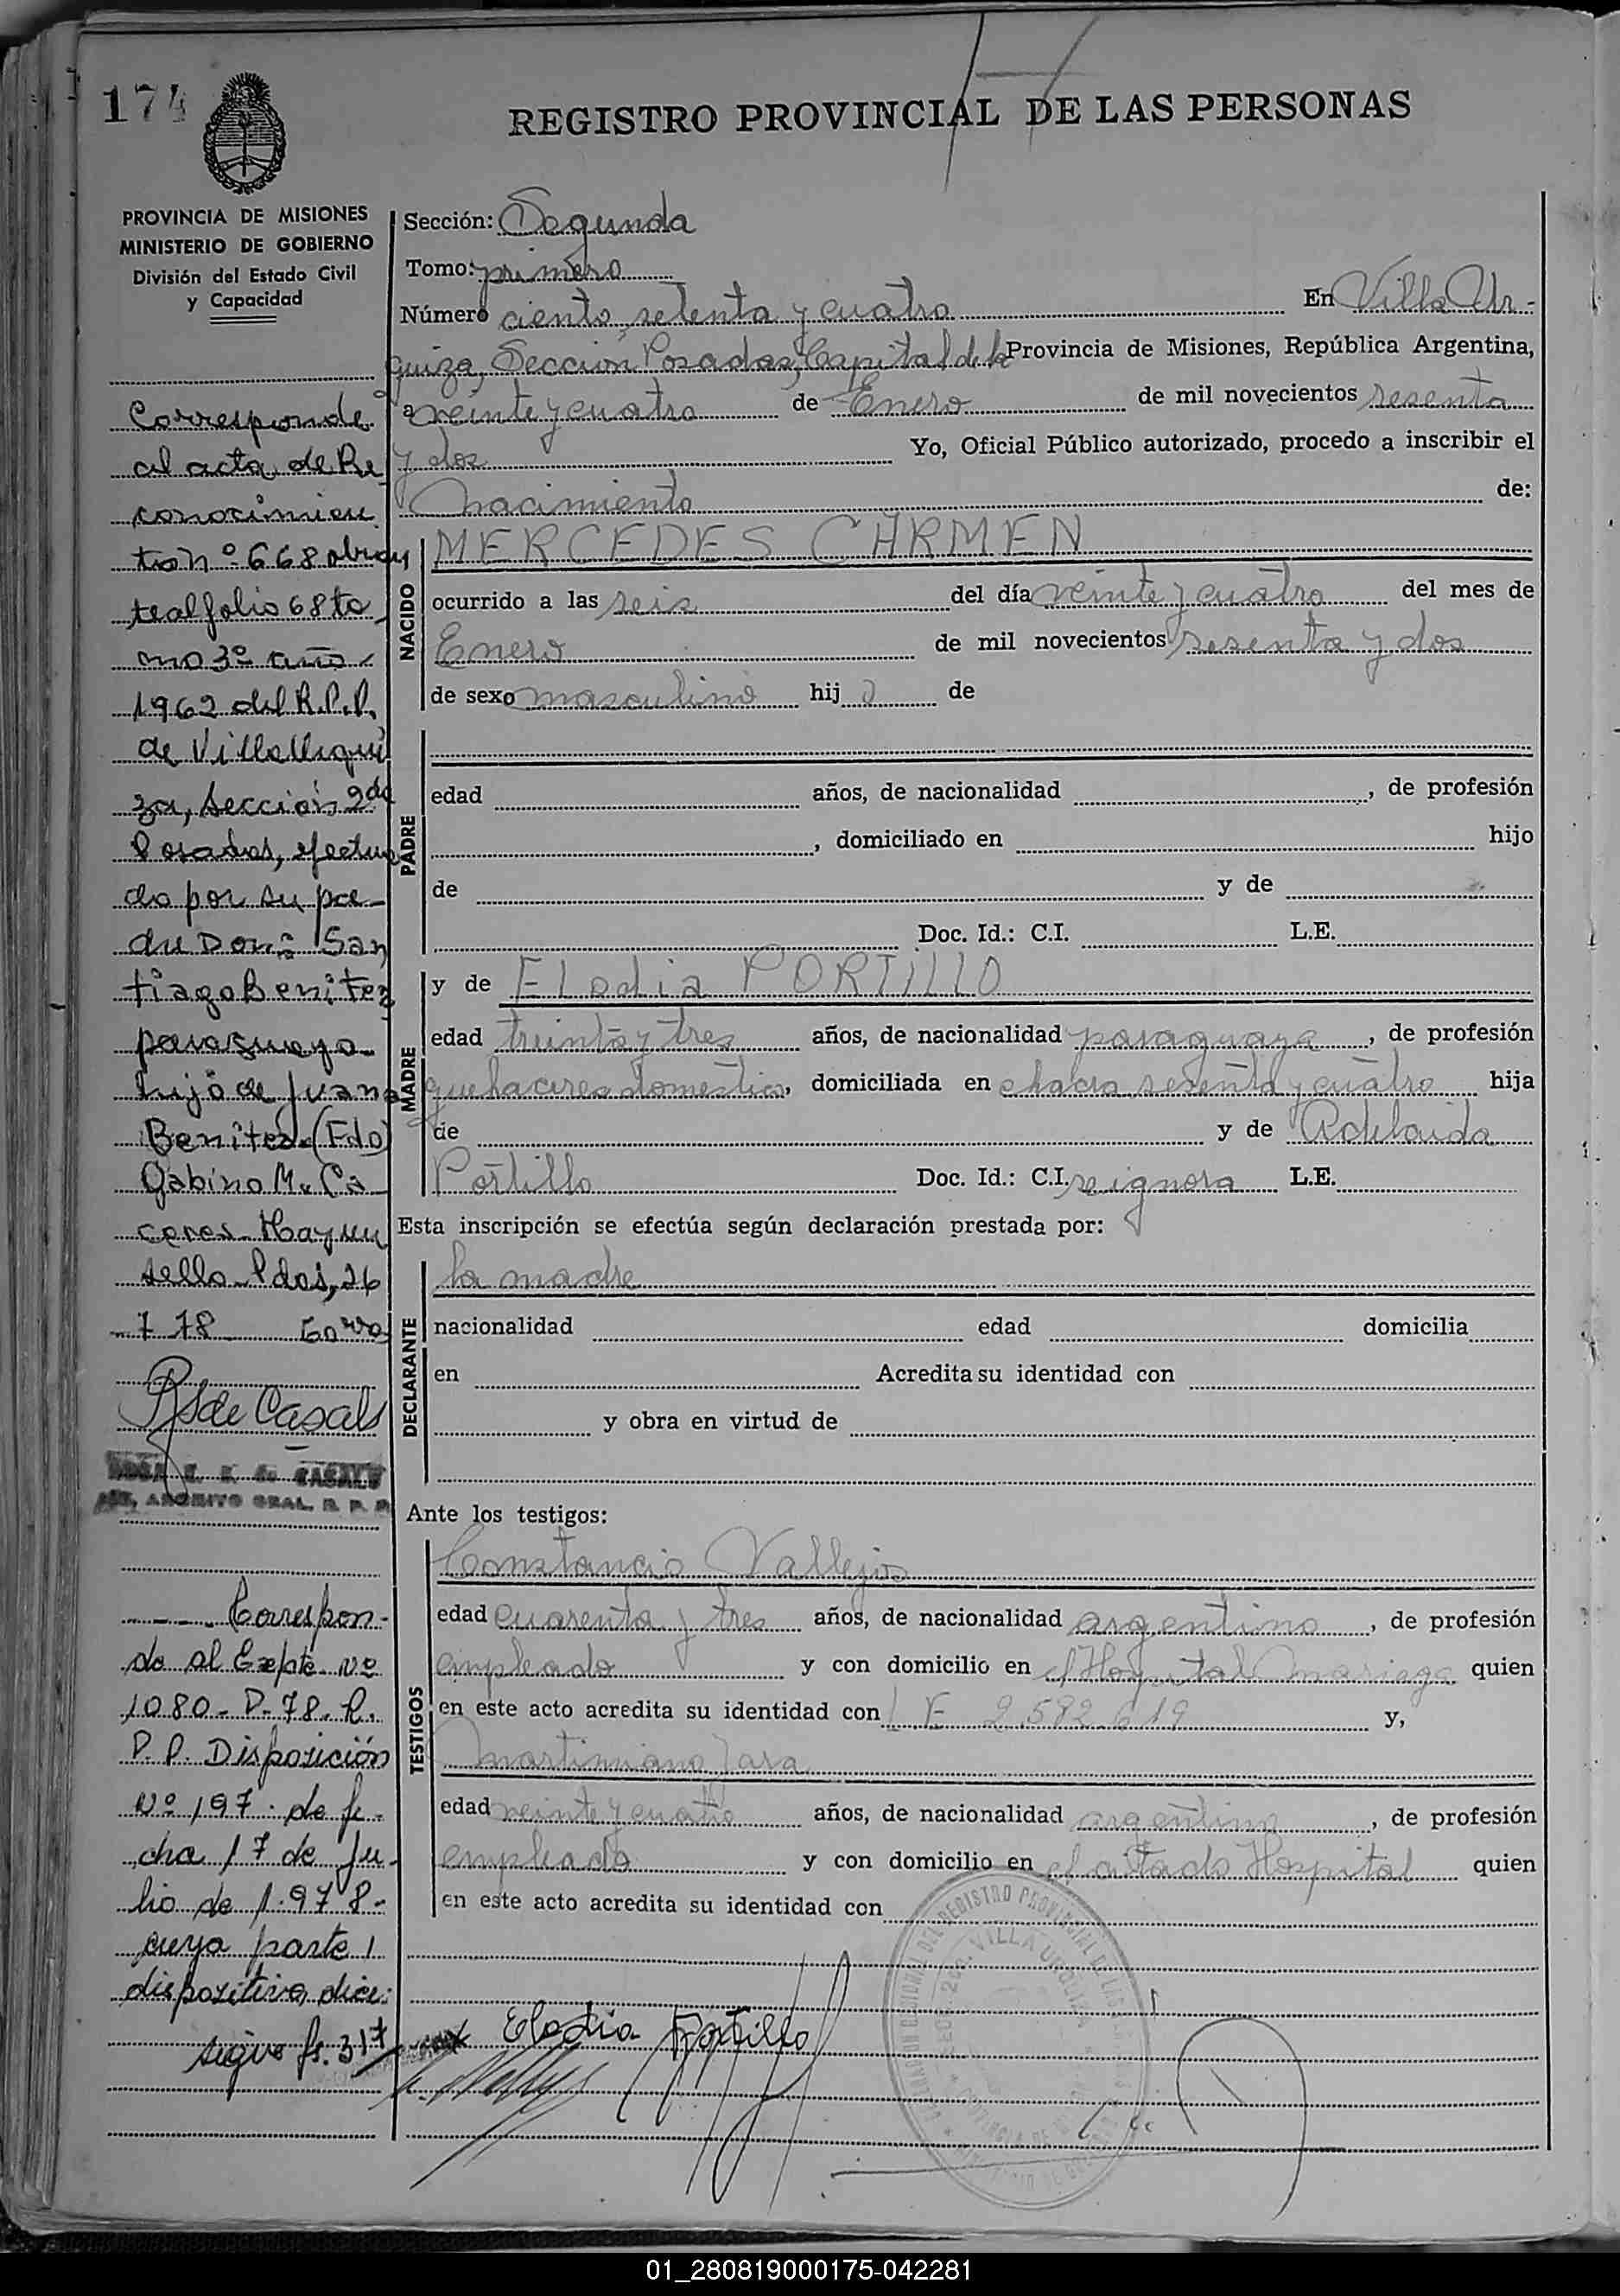 174
REGISTRO PROVINCIAL DE LAS PERSONAS
PROVINCIA DE MISIONES
MINISTERIO DE GOBIERNO
División del Estado Civil
y Capacidad
Corresponde
al acta de Re
conocimien
to nº 668 obran
te al folio 68 to
mo 3º año
1962 del R.P.P.
de Villa Urqui
za, sección 2da
Posadas, efectua
do por su pa-
dre Don: San
tiago Benitez
paraguayo
hijo de Juana
Benitez. (Fdo)
Gabino M. Ca
ceres. Hay un
sello Pdas, 26
7 78
R S de Casals
CASALS
GRAL. R. P. P.
Correspon-
de al Expte nº
1080-P-78. R.
P. P. Disposición
Nº 197. de fe-
cha 17 de Ju-
lio de 1.978-
cuya parte
dispositiva dice:
sigue fs. 317
Sección: Segunda
Tomo: primero
Número ciento setenta y cuatro En Villa Ur-
quiza, Sección Posadas, Capital de la Provincia de Misiones, República Argentina,
a veinte y cuatro de Enero de mil novecientos sesenta
y dos Yo, Oficial Público autorizado, procedo a inscribir el
Nacimiento de:
NACIDO
MERCEDES CARMEN
ocurrido a las seis del día veinte y cuatro del mes de
Enero de mil novecientos sesenta y dos
de sexo masculino hijo de
PADRE
edad años, de nacionalidad , de profesión
, domiciliado en hijo
de y de
Doc. Id.: C.I. L.E.
MADRE
y de Elodia PORTILLO
edad treinta y tres años, de nacionalidad paraguaya, de profesión
quehaceres domestico, domiciliada en chacra sesenta y cuatro hija
de y de Adelaida
Portillo Doc. Id.: C.I. se ignora L.E.
Esta inscripción se efectúa según declaración prestada por:
DECLARANTE
la madre
nacionalidad edad domicilia
en Acredita su identidad con
y obra en virtud de
Ante los testigos:
TESTIGOS
Constancio Vallejos
edad cuarenta y tres años, de nacionalidad argentino, de profesión
empleado y con domicilio en el Hospital Madariaga quien
en este acto acredita su identidad con L E 2.592.619 y,
Martimiano Jara
edad veinte y cuatro años, de nacionalidad argentino, de profesión
empleado y con domicilio en el citado Hospital quien
en este acto acredita su identidad con
Elodia Portillo
DEL REGISTRO PROVINCIAL DE LAS
VILLA URQUIZA
01_280819000175-042281